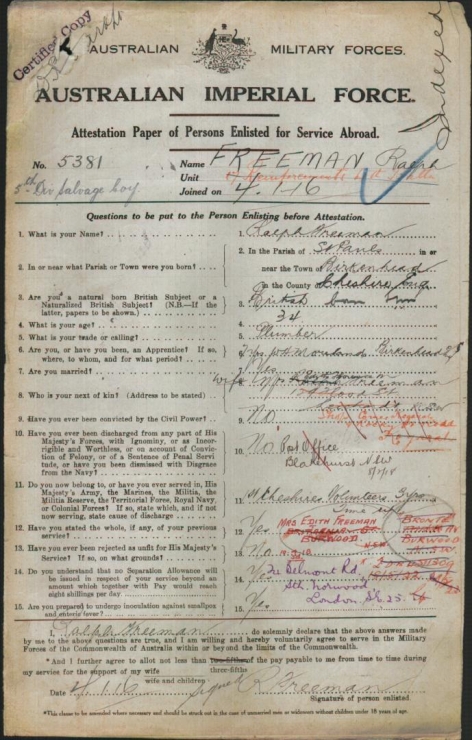 Certified Copy
Indexed
AUSTRALIAN MILITARY FORCES.
AUSTRALIAN IMPERIAL FORCE.
Attestation Paper of Persons Enlisted for Service Abroad.
No. 5381 Name FREEMAN Ralph
5th Div Salvage Coy Unit
Joined on 4.1.16
Questions to be put to the Person Enlisting before Attestation.
1. What is your Name? 1. Ralph Freeman
2. In or near what Parish or Town were you born? 2. In the Parish of St Pauls in or
near the Town of Birkenhead
in the County Cheshire Eng
3. Are you a natural born British Subject or a Naturalized British Subject? (N.B.—If the latter, papers to be shown.) 3. British born
4. What is your age? 4. 34
5. What is your trade or calling? 5. Plumber
6. Are you, or have you been, an Apprentice? If so, where, to whom, and for what period? 6. Birkenhead 5
7. Are you married? 7. Yes
8. Who is your next of kin? (Address to be stated) 8. wife Freeman
9. Have you ever been convicted by the Civil Power? 9. No
10. Have you ever been discharged from any part of His Majesty's Forces, with Ignominy, or as Incorrigible and Worthless, or on account of Conviction of Felony, or of a Sentence of Penal Servitude, or have you been dismissed with Disgrace from the Navy? 10. No
Post Office
Blakehurst NSW
5/7/18
11. Do you now belong to, or have you ever served in, His Majesty's Army, the Marines, the Militia, the Militia Reserve, the Territorial Force, Royal Navy, or Colonial Forces? If so, state which, and if not now serving, state cause of discharge 11. Cheshires Volunteers 3 yrs
Time exp
12. Have you stated the whole, if any, of your previous service? 12. Yes
MRS EDITH FREEMAN
BURWOOD
BRONTE
BURWOOD
13. Have you ever been rejected as unfit for His Majesty's Service? If so, on what grounds? 13. No
14. Do you understand that no Separation Allowance will be issued in respect of your service beyond an amount which together with Pay would reach eight shillings per day 14. Yes
Belmont Rd,
Sth. Norwood
London S.E. 25.
15. Are you prepared to undergo inoculation against smallpox and enteric fever? 15. Yes.
I, Ralph Freeman do solemnly declare that the above answers made
by me to the above questions are true, and I am willing and hereby voluntarily agree to serve in the Military
Forces of the Commonwealth of Australia within or beyond the limits of the Commonwealth.
*And I further agree to allot not less than two-fifths three-fifths of the pay payable to me from time to time during
my service for the support of my wife wife and children
Date 4.1.16 Signed R Freeman
Signature of person enlisted
*This clause to be amended where necessary and should be struck out in the case of unmarried men or widowers without children under 18 years of age.